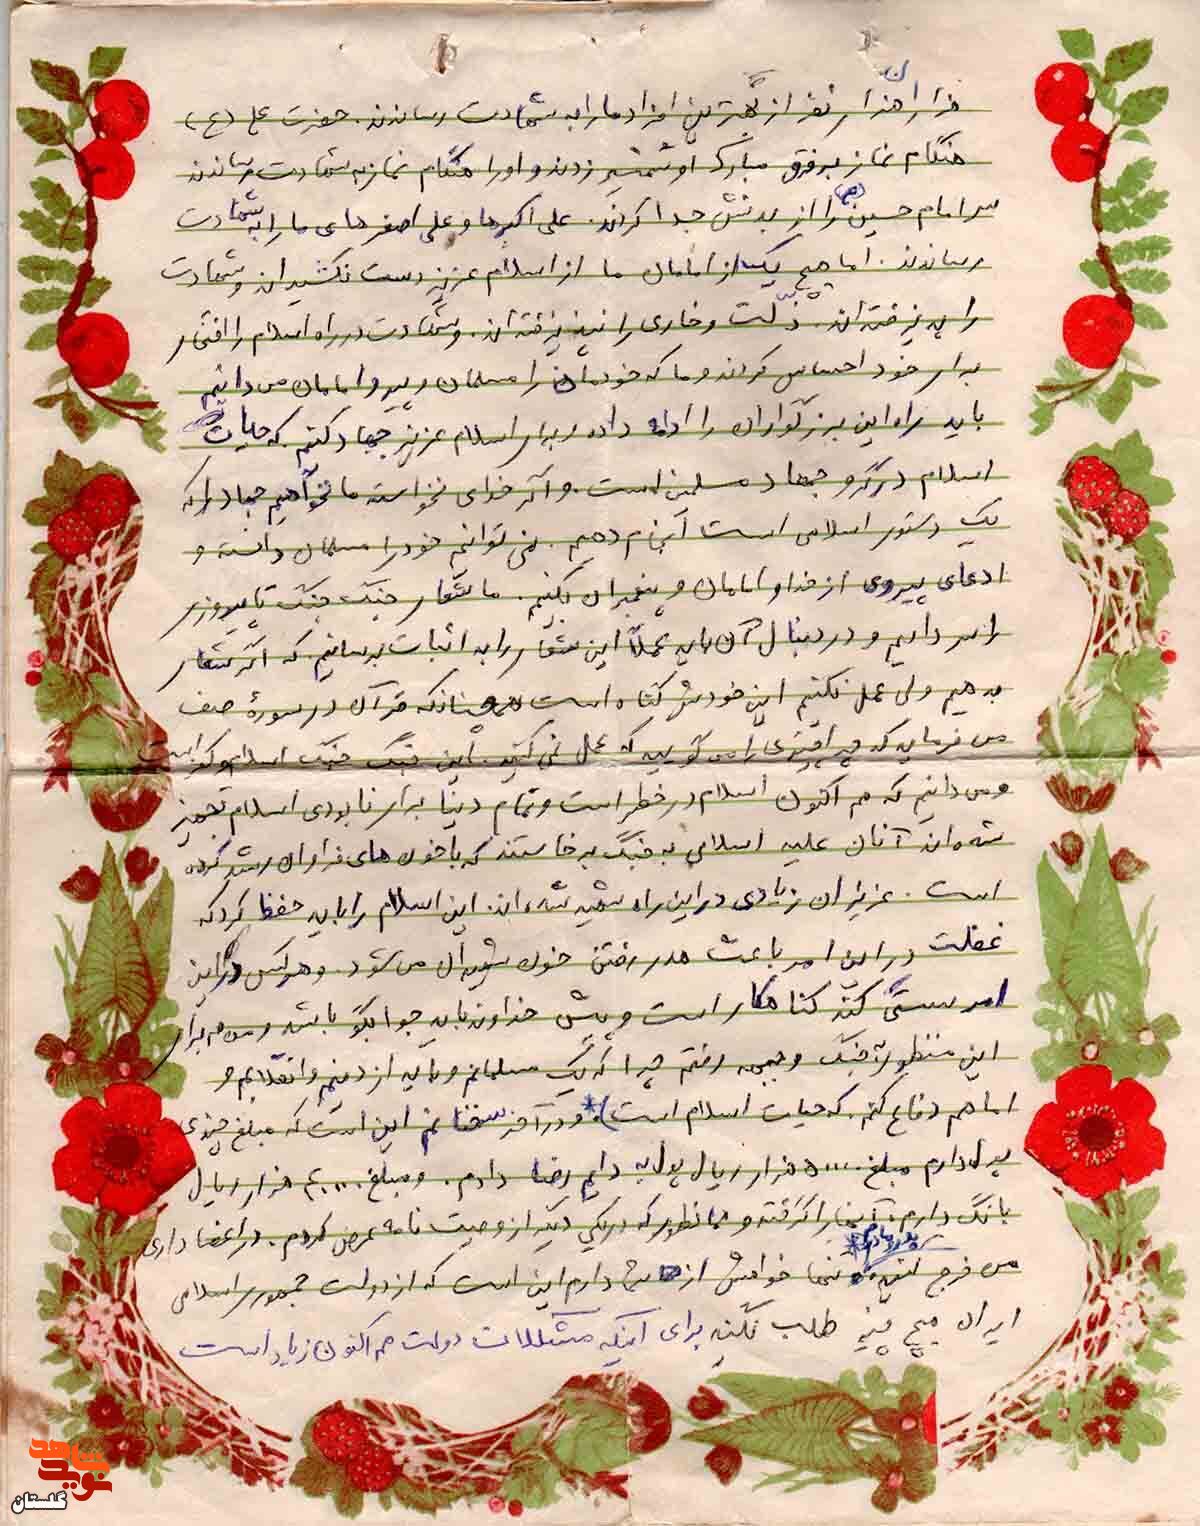 هزاران نفر از بهترین افراد ما را به شهادت رساندند. حضرت علی (ع)
هنگام نماز بر فرق مبارک او شمشیر زدند و او را هنگام نماز به شهادت رساندند
سر امام حسین (ع) را از بدنش جدا کردند. علی اکبرها و علی اصغرهای ما را به شهادت
رساندند. اما هیچ یک از امامان ما از اسلام عزیز دست نکشیدان و شهادت
را پذیرفته اند. ذلت و خاری را نپذیرفته اند. و شهادت در راه اسلام را افتخار
برای خود احساس کردند و ما که خودمان را مسلمان و پیرو امامان می دانیم
باید راه این بزرگواران را ادامه داده و برای اسلام عزیز جهاد کنیم. که حیات
اسلام در گرو جهاد مسلمین است. و اگر خدای نخواسته ما نخواهیم جهاد را که
یک دستور اسلامی است انجام دهیم. نمی توانیم خود را مسلمان دانسته و
ادعای پیروی از خدا و امامان و پیغمبران بکنیم. ما شعار جنگ جنگ تا پیروزی
را سر دادیم و در دنبال آن باید عملاً این شعار را به اثبات برسانیم. که اگر شعار
بدهیم ولی عمل نکنیم این خودش گناه است همچنانکه قرآن در سورهٔ صف
می فرماید که چرا چیزی را می گویید که عمل نمی کنید. این جنگ جنگ اسلام و کفر است
و می دانیم که هم اکنون اسلام در خطر است و تمام دنیا برای نابودی اسلام تجهیز
شده اند آنان علیه اسلامی به جنگ برخاستند که با خون های فراوان رشد کرده
است. عزیزان زیادی در این راه شهید شده اند. این اسلام را باید حفظ کرد که
غفلت در این امر باعث هدر رفتن خون شهیدان می شود. و هر کس در این
امر سستی کند گناهکار است و پیش خداوند باید جوابگو باشد و من هم برای
این منظور به جنگ و جبهه رفتم چرا که یک مسلمانم و باید از دینم و انقلابم و
امامم دفاع کنم. که حیات اسلام است). و در آخر سخنانم این است که مبلغ چیزی
پول دارم مبلغ ۵۰۰۰۰ هزار ریال پول به دایم رضا دادم. و مبلغ هزار ریال
بانک دارم. آنها را گرفته و همانطور که در یکی دیگه از وصیت نامه عرض کردم. در عضاداری
من خرج کنید. تنها خواهش از پدر و مادرم دارم این است که از دولت جمهوری اسلامی
ایران هیچ چیز طلب نکنید برای اینکه مشکلات دولت هم اکنون زیاد است
نوید شاهد
گلستان